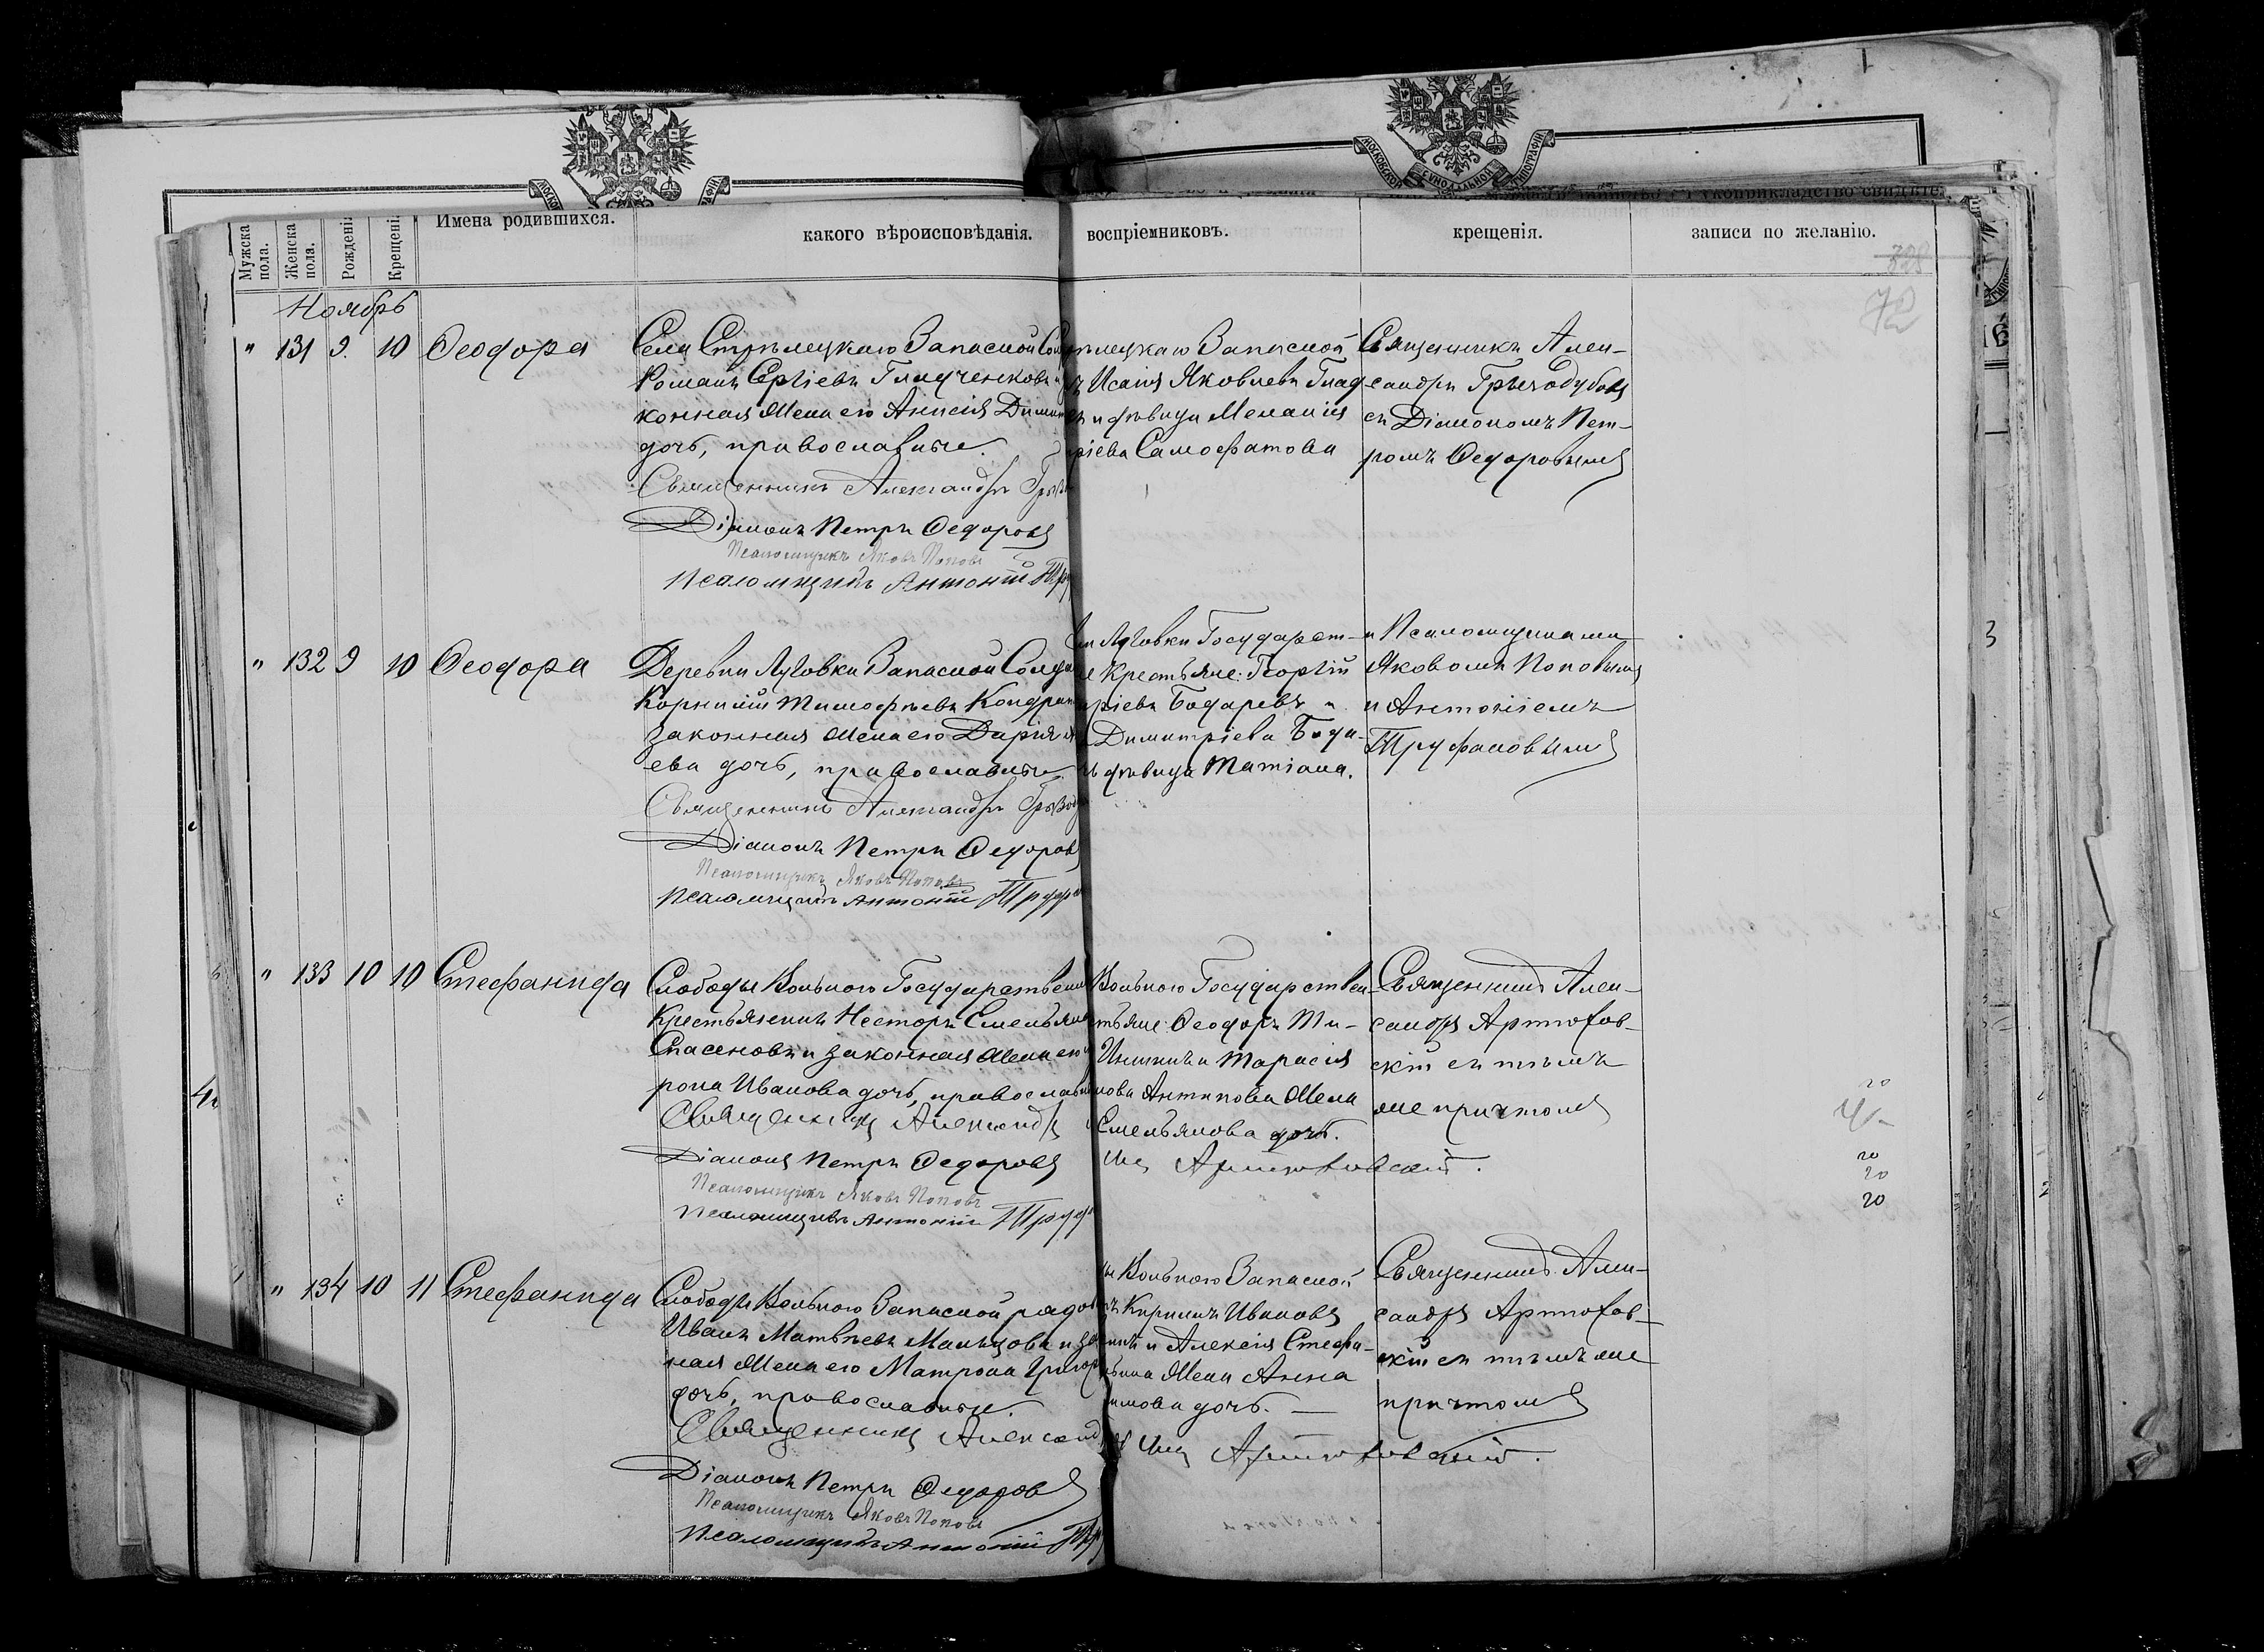 МОСКОВСКОЙ СѴНОДАЛЬНОЙ ТИПОГРАФІИ
Мужска пола.
Женска пола.
Рожденія
Крещенія
Имена родившихся.
какого вѣроисповѣданія.
воспріемниковъ.
крещенія.
записи по желанію.
72
Ноябрь
" 131 9. 10 Ѳеодора
Села Стрѣлецкаго Запасной
Романъ Сергіевъ Гладченковъ и
конная жена его Анисія
дочь, православные.
Священникъ Александръ
Діаконъ Петръ Ѳедоровъ
Псаломщикъ Яковъ Поповъ
Псаломщикъ Антоній
рѣлецкаго Запасной
ъ Исаія Яковлевъ Глад
и дѣвица Меланія
ріева Самофатова
Священникъ Алек-
сандръ
съ Діакономъ Пет-
ромъ Ѳедоровымъ
" 132 9 10 Ѳеодора
Деревни Луговки Запасной
Корнилій Тимофѣевъ
законная жена его Дарія
ева дочь, православные
Священникъ Александръ
Діаконъ Петръ Ѳедоровъ
Псаломщикъ Яковъ Поповъ
Псаломщикъ Антоній
Луговки Государст-
Крестьяне: Георгій
ріевъ Бодаревъ и
Димитріева Бода-
дѣвица Татіана.
и Псаломщиками
Яковомъ Поповымъ
и Антоніемъ
Труфановымъ
" 133 10 10 Стефанида
Слободы Вольного Государственный
Крестьянинъ Несторъ Емельяновъ
Спасеновъ и законная жена его
рона Иванова дочь, православные
Священникъ Александръ
Діаконъ Петръ Ѳедоровъ
Псаломщикъ Яковъ Поповъ
Псаломщикъ Антоній
Вольного Государствен-
тьяне: Ѳеодоръ Ти-
и Тарасія
нова Антипова жена
Емельянова дочь.
Артюховскій.
Священникъ Алек-
сандръ Артюхов-
скій съ тѣмъ
же причтомъ
20
20
20
20
" 134 10 11 Стефанида
Слободы Вольного Запасной рядов
Иванъ Матвѣевъ Мальцовъ и за
ная жена его Матрона Григор
дочь, православные.
Священникъ Александ
Діаконъ Петръ Ѳедоровъ
Псаломщикъ Яковъ Поповъ
Псаломщикъ Антоній
Вольного Запасной
Кирилъ Ивановъ
и Алексія Стефа-
жена Анна
имова дочь. —
Артюховскій.
Священникъ Алек-
сандръ Артюхов-
скій съ тѣмъ же
причтомъ